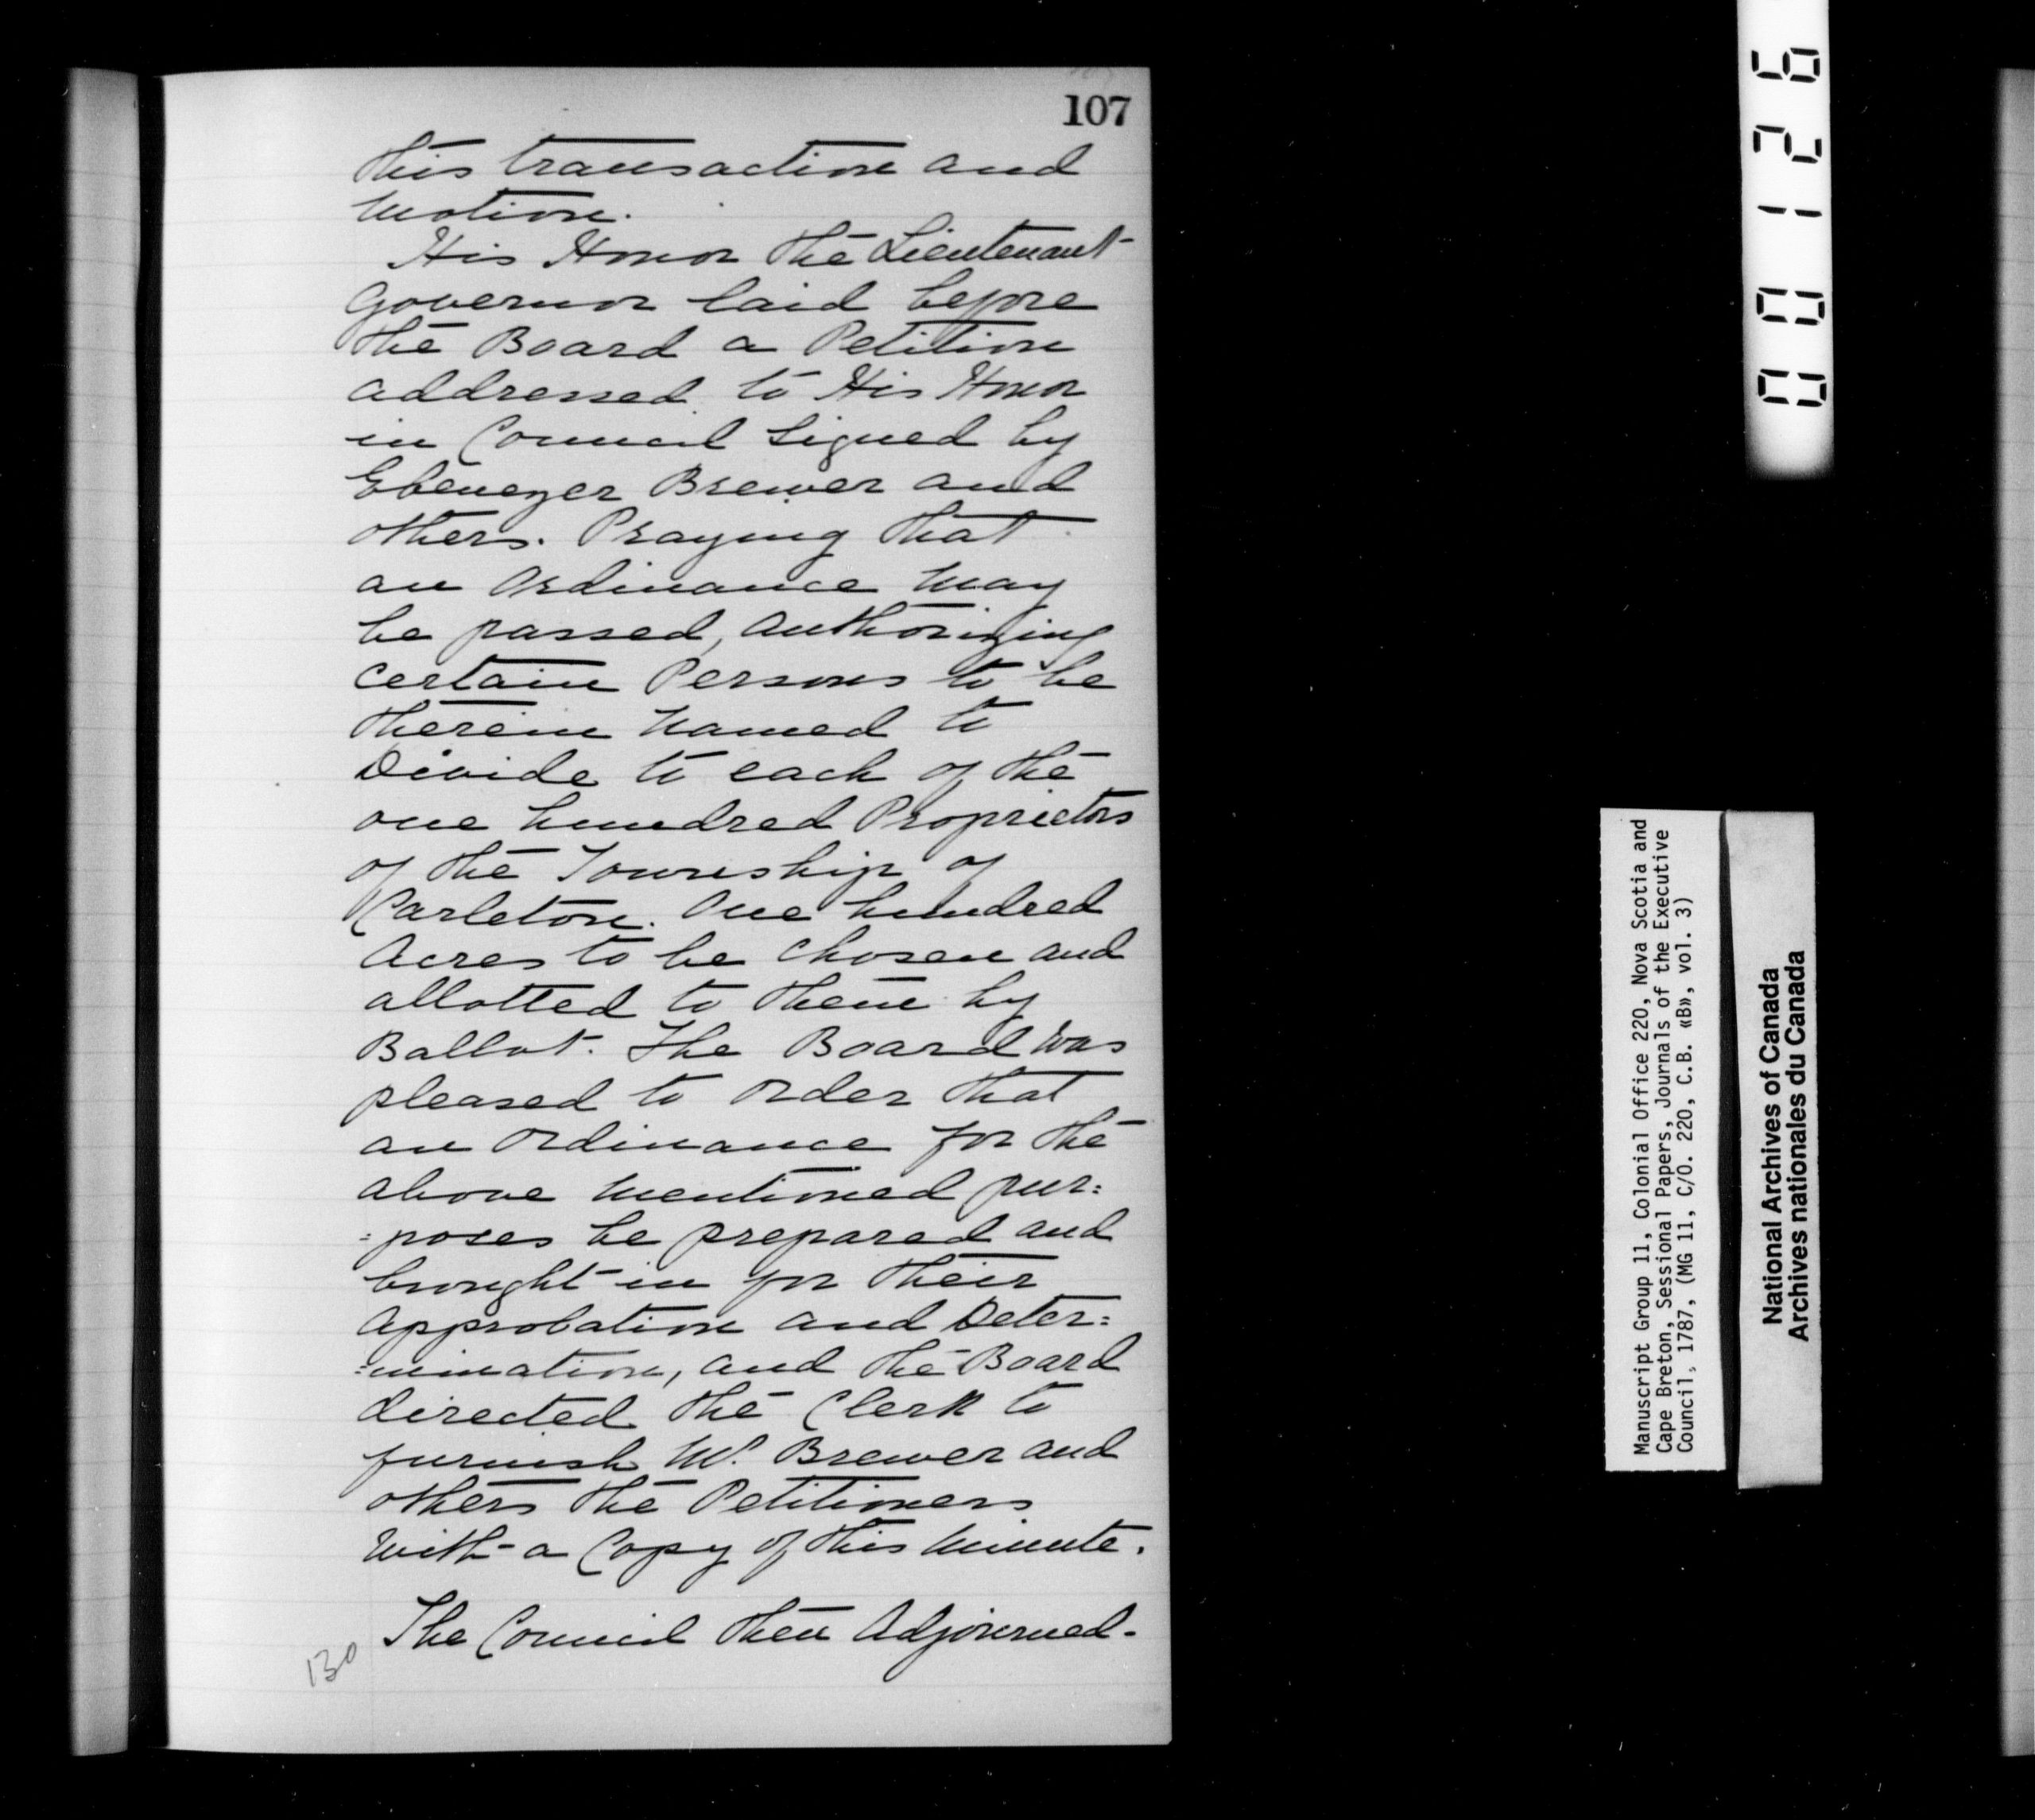 107
this transaction and
motion.
His Honor the Lieutenant
Governor laid before
the Board a Petition
addressed to His Honor
in Council signed by
Ebenezer Brewer and
others. Praying that
an Ordinance may
be passed, authorizing
certain Persons to be
therein named to
Divide to each of the
one hundred Proprietors
of the Township of
Carleton. One hundred
Acres to be chosen and
allotted to them by
Ballot. The Board was
pleased to order that
an ordinance for the
above mentioned pur=
=poses be prepared and
brought in for their
Approbation and Deter=
=mination, and the Board
directed the Clerk to
furnish Mr. Brewer and
others the Petitioners
with a Copy of this minute.
The Council then Adjourned.
130
00126
Manuscript Group 11, Colonial Office 220, Nova Scotia and
Cape Breton, Sessional Papers, Journals of the Executive
Council, 1787, (MG 11, C/O. 220, C.B. «B», vol. 3)
National Archives of Canada
Archives nationales du Canada